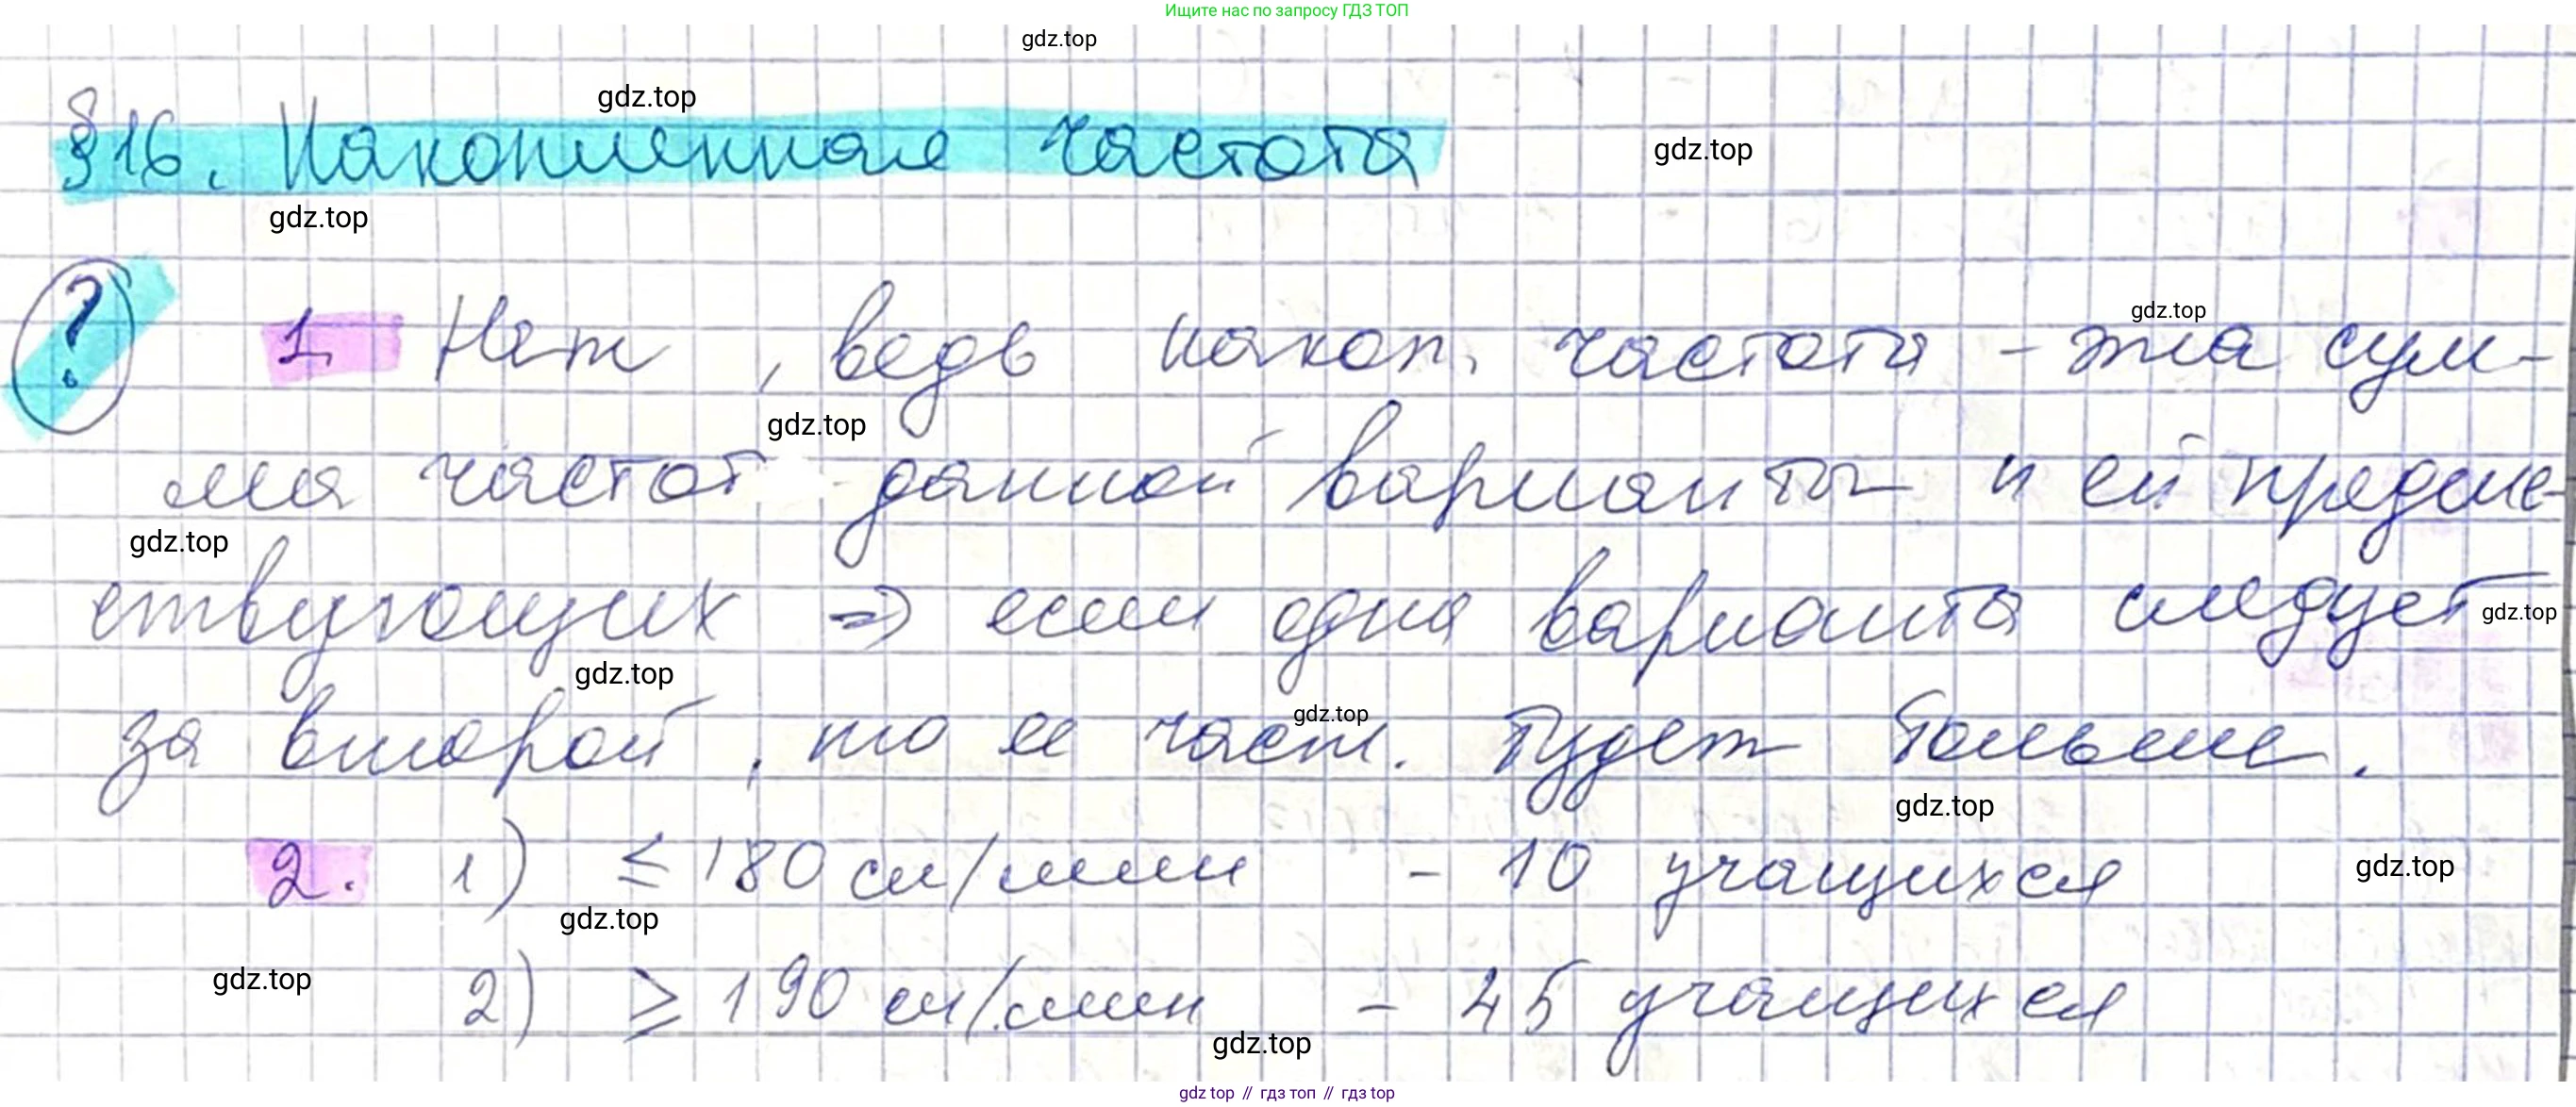 Ищите нас по запросу ГДЗ ТОП
gdz.top
gdz.top
§16. Накопленная частота
gdz.top
gdz.top
gdz.top
? 1. Нет, ведь накоп. частота - эта сум-
gdz.top
ма частот данной варианты и ей предше-
gdz.top
ствующих ⇒ если одна варианта следует
gdz.top
gdz.top
gdz.top
за второй, то ее част. будет больше.
gdz.top
2. 1) ≤ 180 сл/мин - 10 учащихся
gdz.top
gdz.top
gdz.top
2) ≥ 190 сл/мин - 45 учащихся
gdz.top
gdz top // гдз топ // гдз top